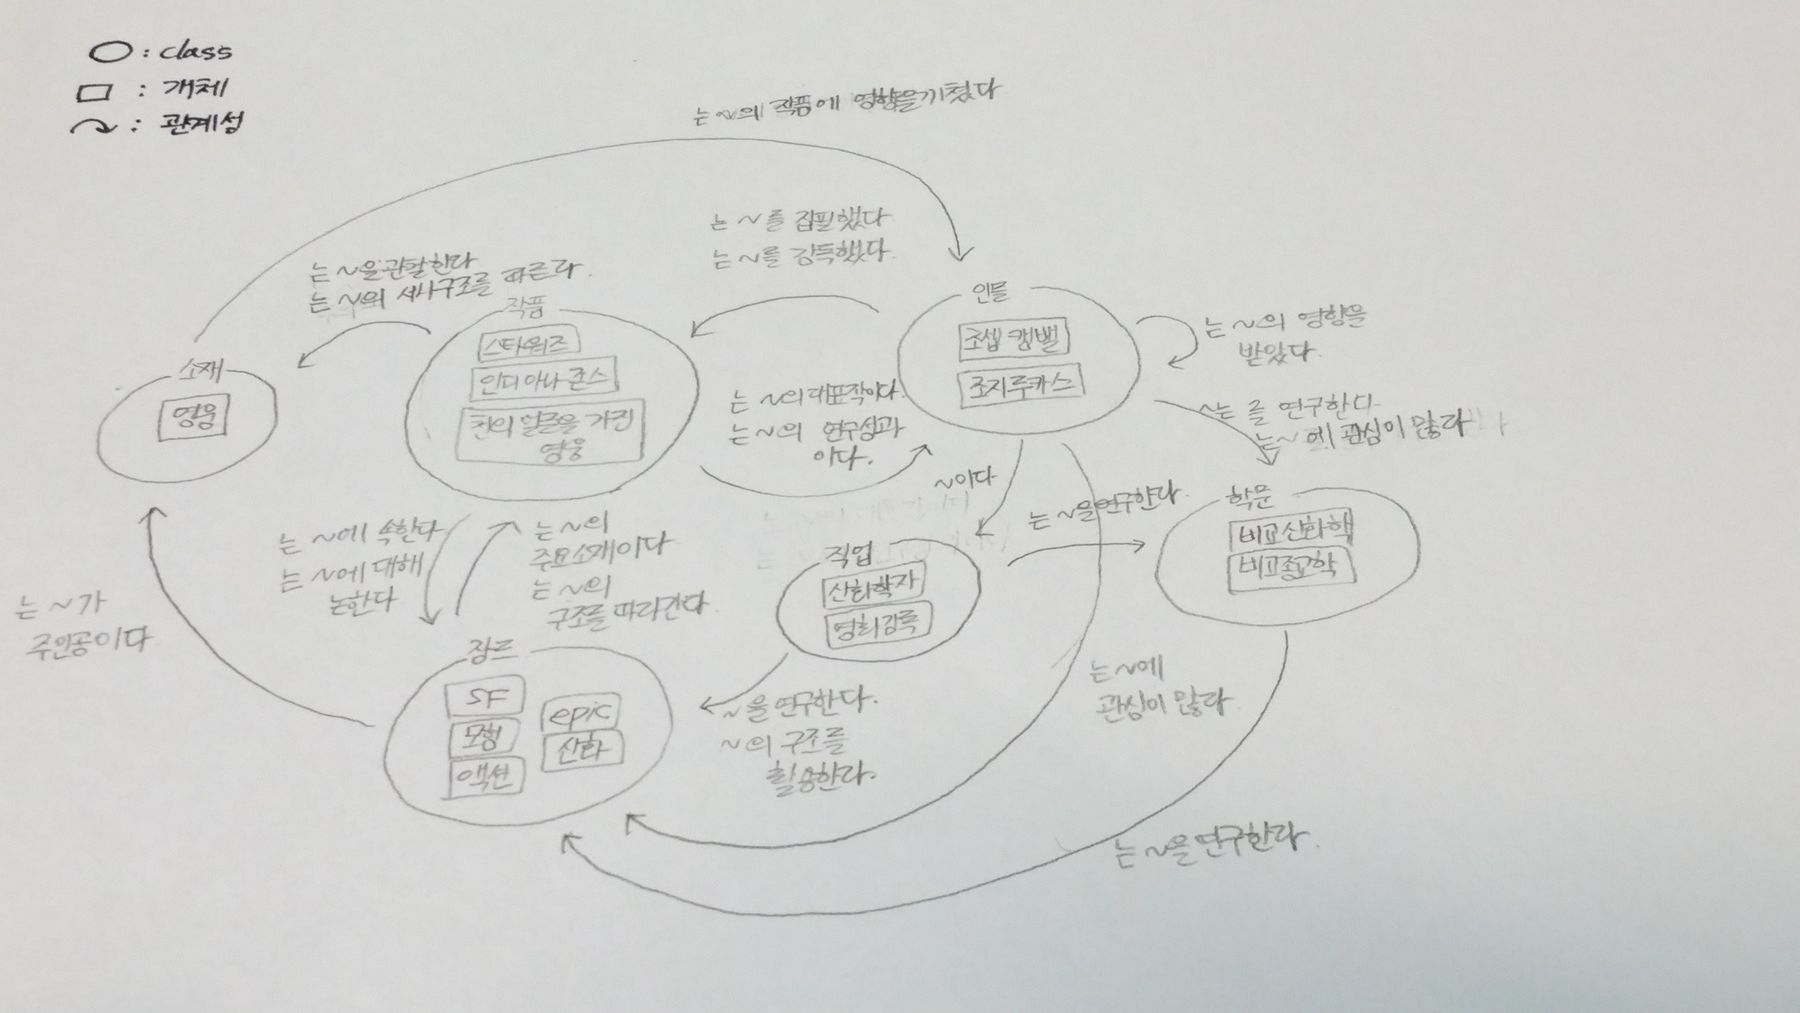 ○ : class
□ : 개체
: 관계성
는 ~의 작품에 영향을 끼쳤다
는 ~를 집필했다
는 ~를 감독했다.
는 ~을 관찰한다
는 ~의 서사구조를 따른다.
작품
스타워즈
인디아나 존스
천의 얼굴을 가진
영웅
인물
조셉 캠밸
조지루카스
는 ~의 영향을
받았다.
소재
영웅
는 ~의 대표작이다.
는 ~의 연구성과
이다.
~는 를 연구한다.
는 ~에 관심이 많다
~이다
는 ~을 연구한다.
학문
비교신화학
비교종교학
는 ~에 속한다
는 ~에 대해
논한다
는 ~의
주요소재이다
는 ~의
구조를 따라간다.
직업
신화학자
영화감독
는 ~가
주인공이다
장르
SF
모험
액션
epic
신화
~을 연구한다.
~의 구조를
활용한다.
는 ~에
관심이 많다.
는 ~을 연구한다.